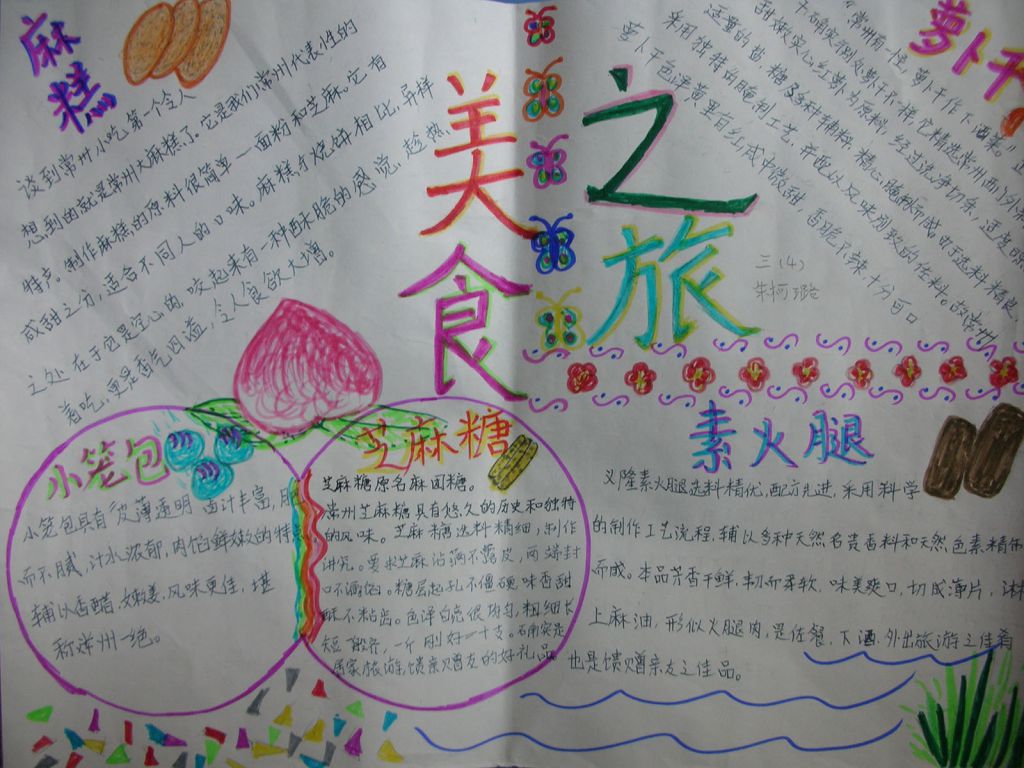 美食
之旅
三(4)
朱柯璐
麻糕
谈到常州小吃第一个令人
想到的就是常州大麻糕了。它是我们常州代表性的
特产。制作麻糕的原料很简单——面粉和芝麻。它有
咸甜之分,适合不同人的口味。麻糕与烧饼相比,异样
之处在于它是空心的,咬起来有一种酥脆的感觉。趁热
着吃,更是香气四溢,令人食欲大增。
萝卜干
"常州有一怪,萝卜干作下酒菜。"
采用独特的腌制工艺,并配以风味别致的佐料。故常州
萝卜干色泽黄里有红,咸中微甜,香脆不辣,十分可口
小笼包
小笼包具有皮薄透明 卤汁丰富,
而不腻,汁水浓郁,肉馅鲜嫩的特点,
辅以香醋、嫩姜,风味更佳,堪
称常州一绝。
芝麻糖
芝麻糖原名麻团糖。
常州芝麻糖具有悠久的历史和独特
的风味。芝麻糖选料精细,制作
讲究。要求芝麻沾满不露皮,两端封
口不漏馅。糖层起孔不僵硬,味香甜
酥不粘齿。色泽白亮很均匀,粗细长
短一般齐,一斤刚好一十支。确实是
居家旅游,馈亲赠友的好礼品。
素火腿
义隆素火腿选料精优,配方先进,采用科学
的制作工艺流程,辅以多种天然名贵香料和天然色素精作
而成。本品芳香干鲜,韧而柔软,味美爽口,切成薄片,
上麻油,形似火腿肉,是佐餐、下酒、外出旅游之佳肴
也是馈赠亲友之佳品。